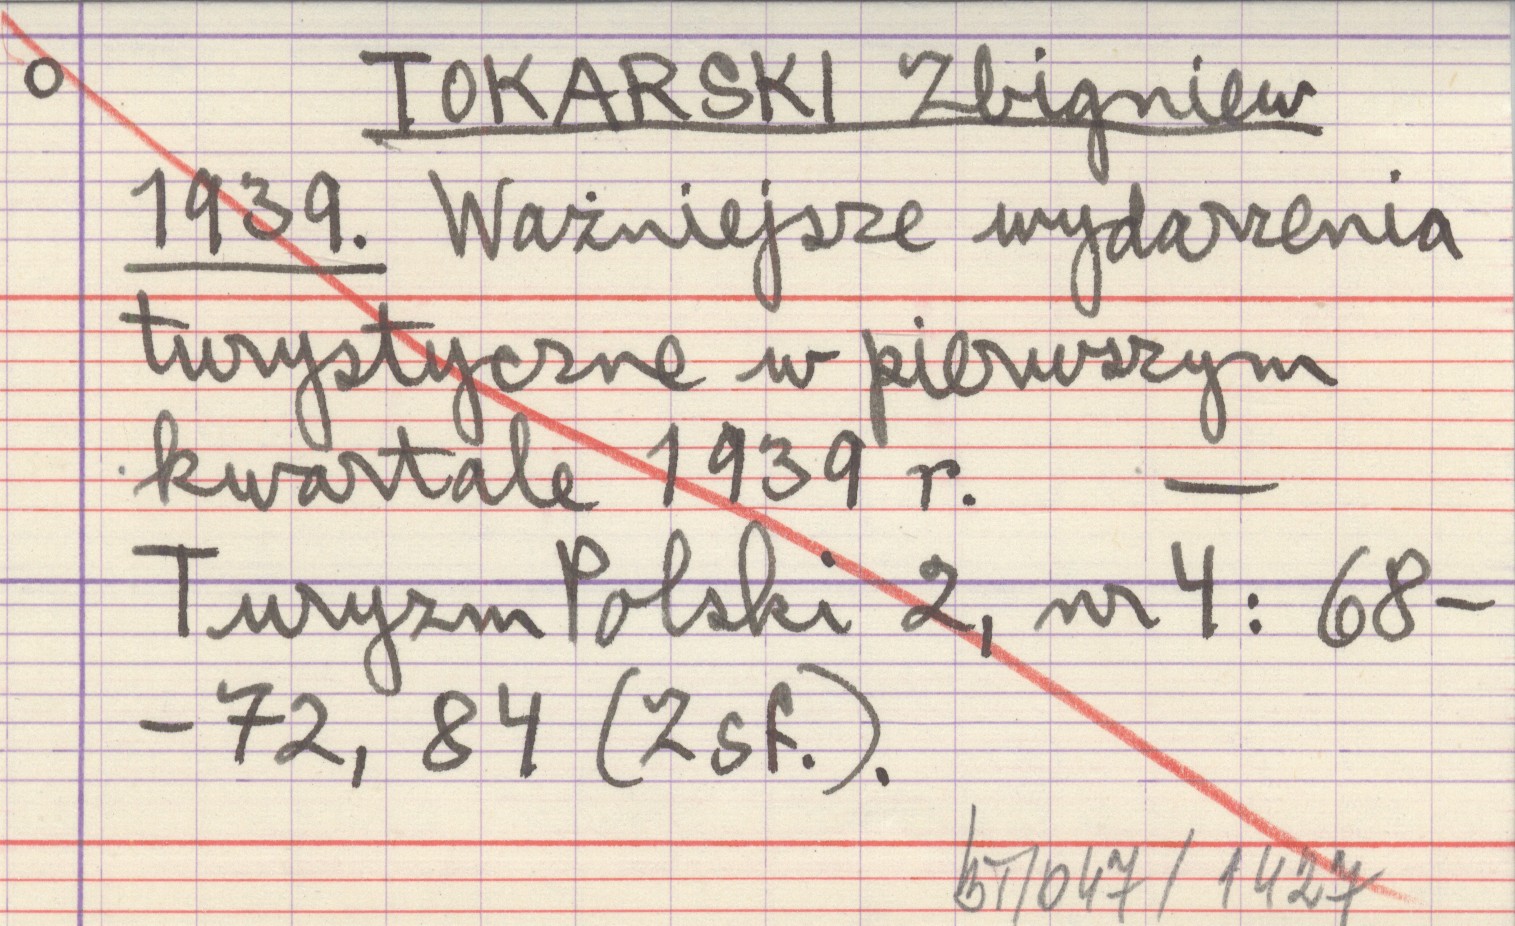 o
TOKARSKI Zbigniew
1939. Ważniejsze wydarzenia
turystyczne w pierwszym
kwartale 1939 r. —
Turyzm Polski 2, nr 4: 68-
-72, 84 (Z sf.).
047/1427